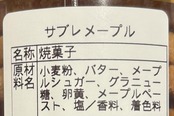 サブレメープル
名称 焼菓子
原材料名 小麦粉、バター、メープ
ルシュガー、グラニュー
糖、卵黄、メープルペー
スト、塩／香料、着色料